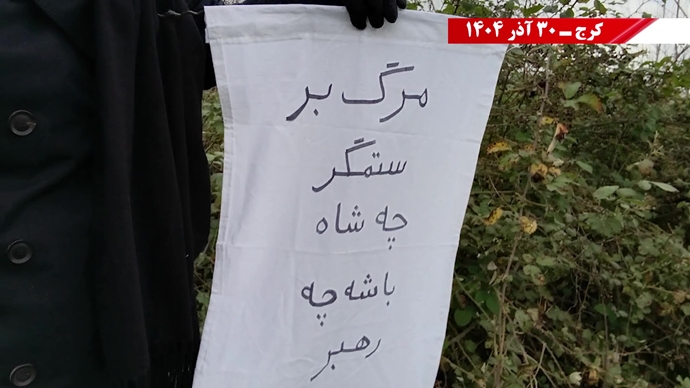 کرج – ۳۰ آذر ۱۴۰۴
مرگ بر
ستمگر
چه شاه
باشه چه
رهبر